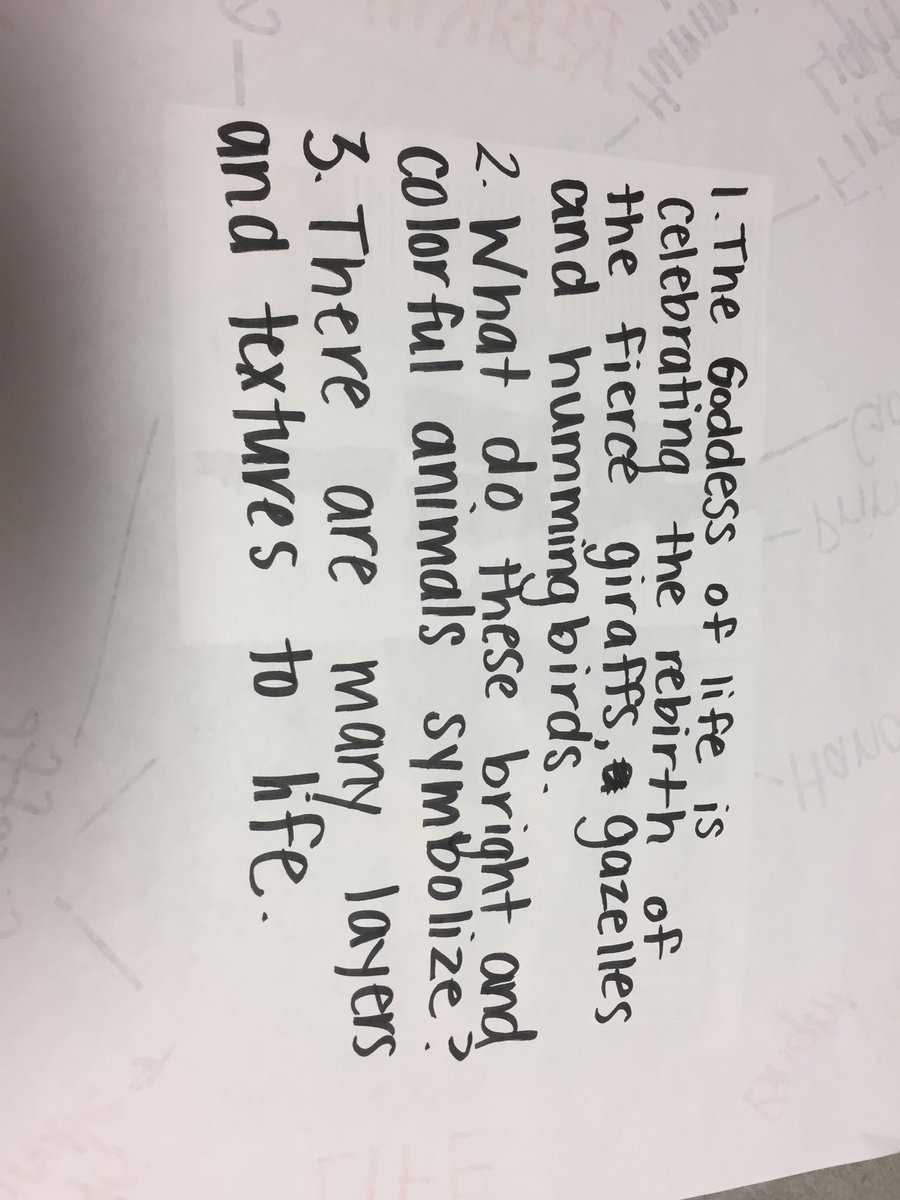 1. The Goddess of life is
celebrating the rebirth of
the fierce giraffs, gazelles
and hummingbirds.
2. What do these bright and
colorful animals symbolize?
3. There are many layers
and textures to life.